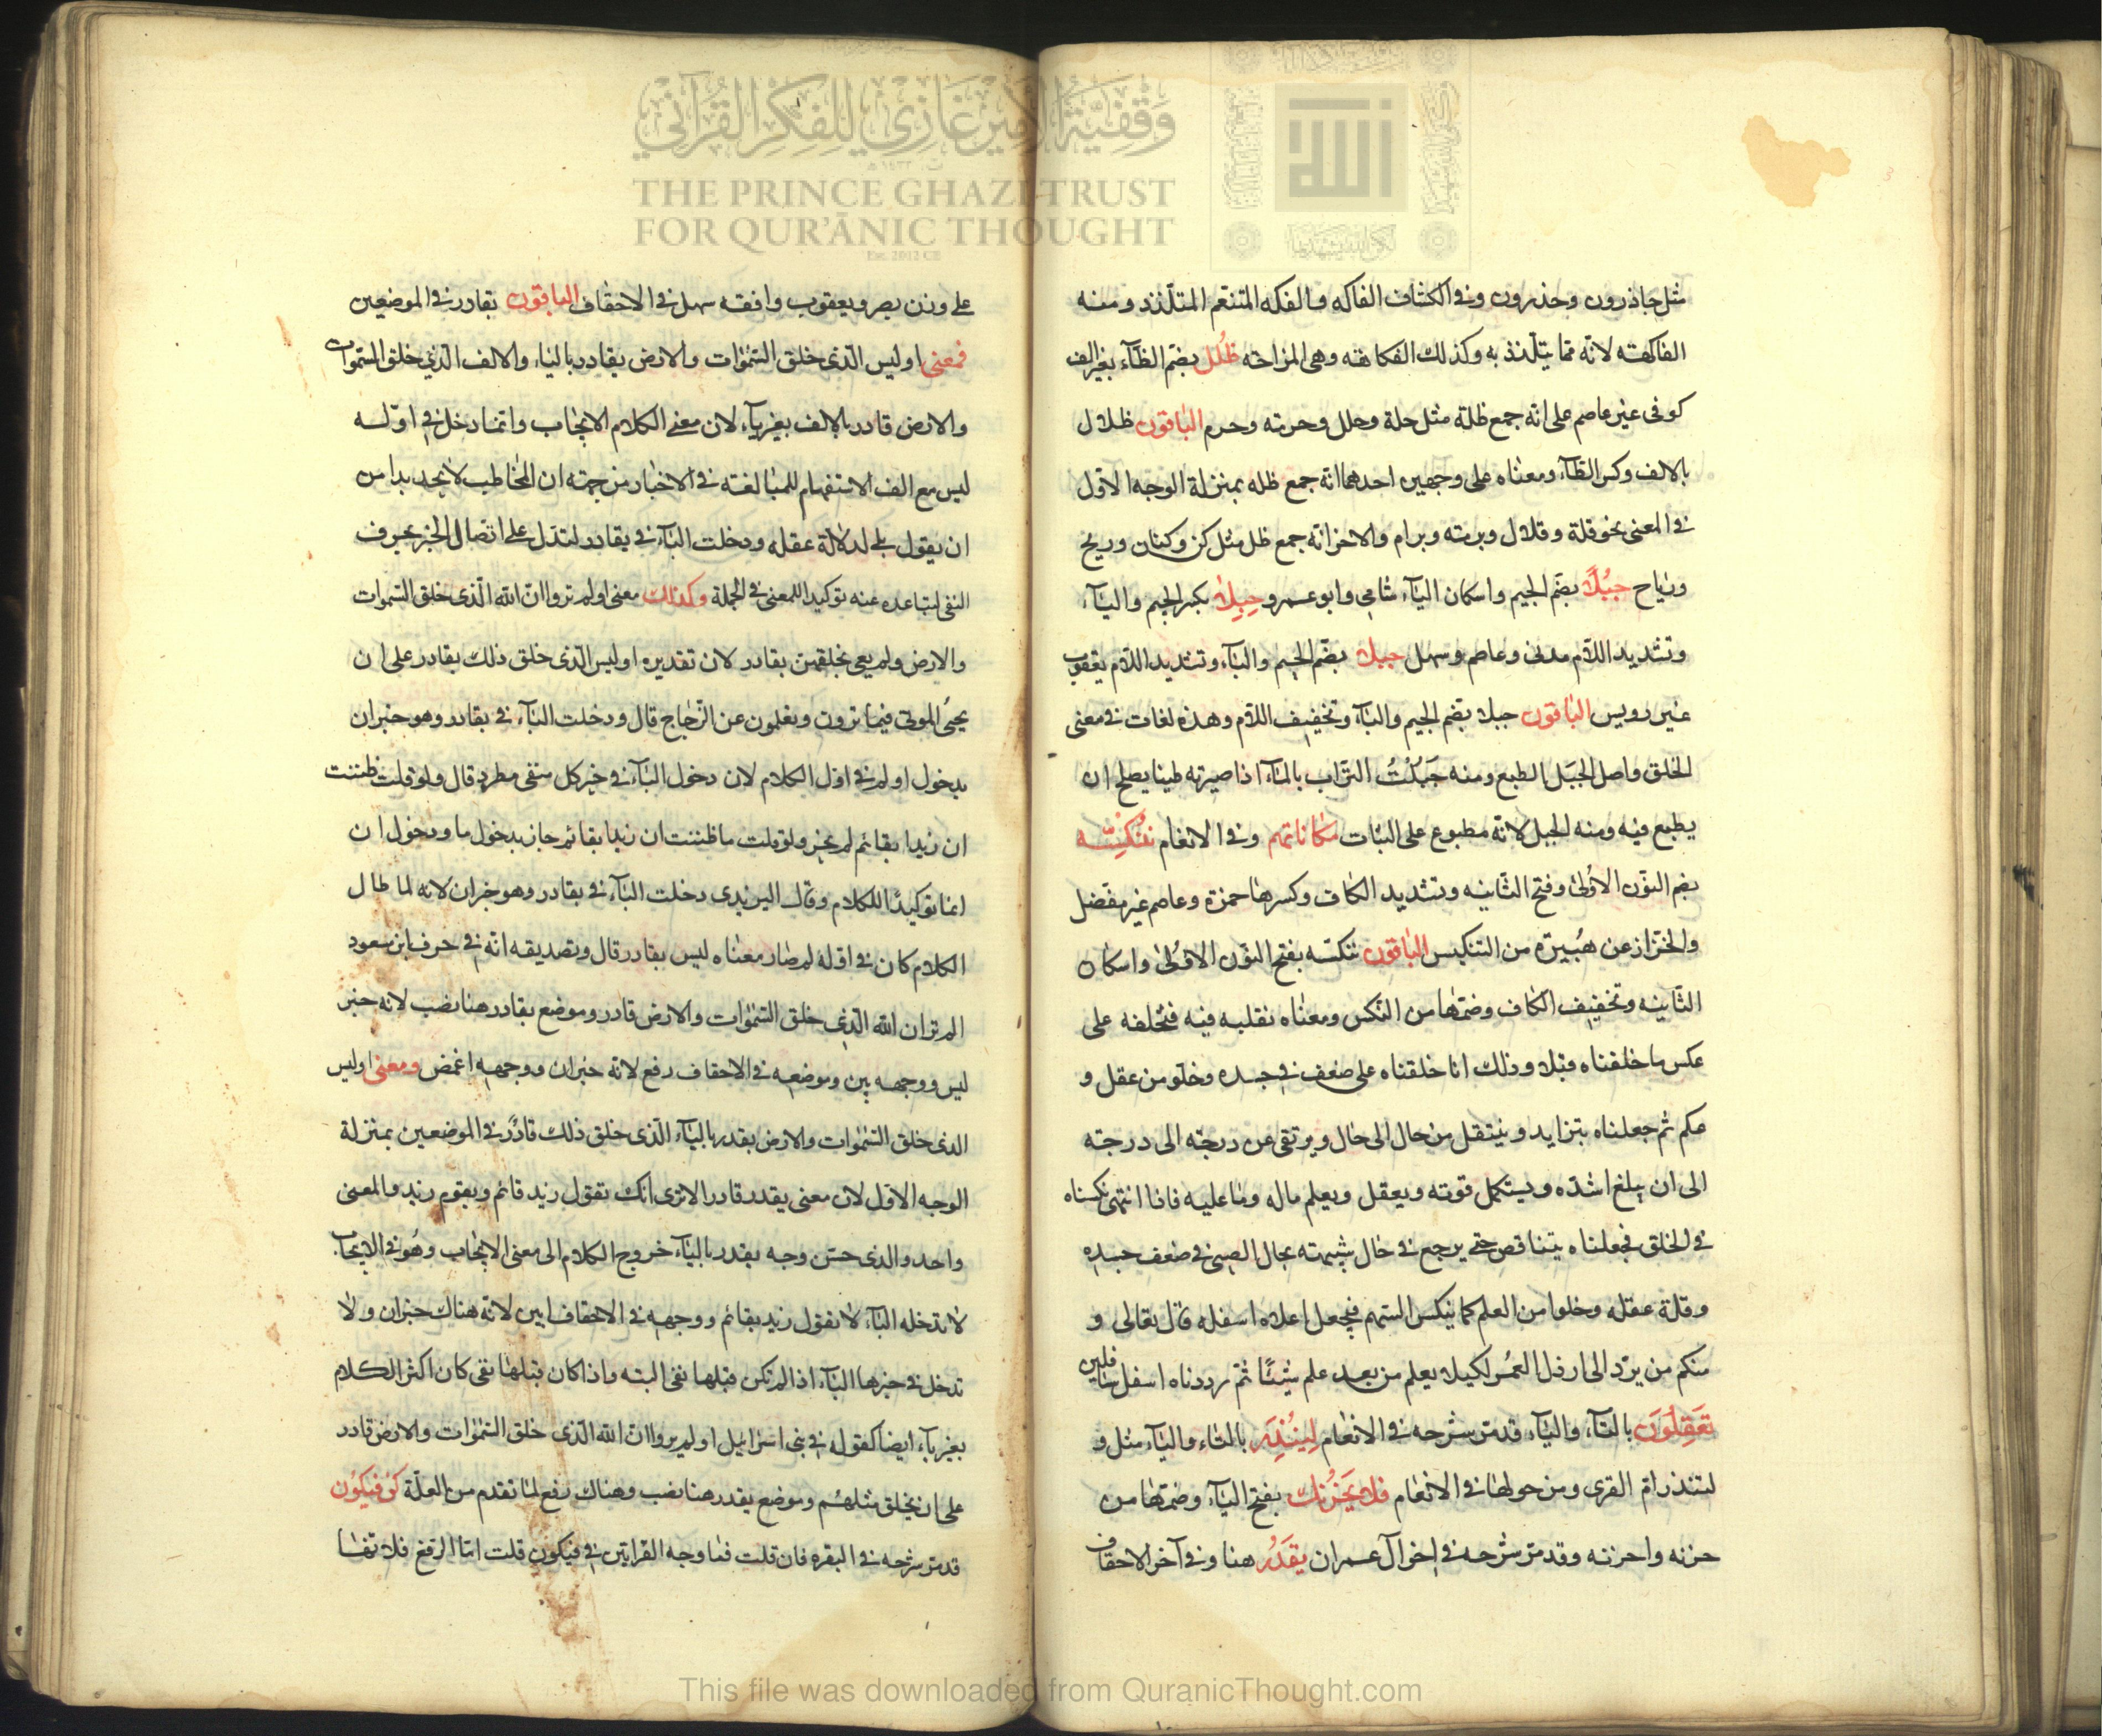 مثل حاذرون وحذرون وفي الكشاف الفاكه والفكه المتنعم المتلذذ ومنه
الفاكهة لانه مما يتلذذ به وكذلك الفكاهة وهي المزاحة ظُلَل بضم الظآء بغير الف
كوفي غير عاصم على انه جمع ظلة مثل حلة وحلل وحرمة وحرم الباقون ظلال
بالالف وكسر الظآء ومعناه على وجهين احدهما انه جمع ظله بمنزلة الوجه الاول
في المعنى نحو قلة وقلال وبرمة وبرام والاخر انه جمع ظل مثل كن وكنان وريح
ورياح جُبْلًا بضم الجيم واسكان البآء شامي وابو عمرو جِبِلًّا بكسر الجيم والبآء
وتشديد اللام مدني وعاصم وسهل جبلا بضم الجيم والبآء وتشديد اللام يعقوب
غير رويس الباقون جبلا بضم الجيم والبآء وتخفيف اللام وهذه لغات في معنى
الخلق واصل الجبل الطبع ومنه جَبَلْتُ التراب بالمآء اذا صيرته طينا يصلح ان
يطبع فيه ومنه الجبل لانه مطبوع على الثبات مكاناتهم وفي الانعام نُنَكِّسْه
بضم النون الاولى وفتح الثانيه وتشديد الكاف وكسرها حمزة وعاصم غير مفضل
والخزاز عن هُبيرة من التنكيس الباقون ننكسه بفتح النون الاولى واسكان
الثانيه وتخفيف الكاف وضمها من النكس ومعناه نقلبه فيه فنخلقه على
عكس ما خلقناه قبلا وذلك انا خلقناه على ضعف في جسده وخلو من عقل و
حكم ثم جعلناه يتزايد وينتقل من حال الى حال ويرتقي من درجة الى درجة
الى ان يبلغ اشده ويستكمل قوته ويعقل ويعلم ماله وما عليه فاذا انتهى نكسناه
في الخلق فجعلناه يتناقص حتى يرجع في حال شبيهة بحال الصبي في ضعف جسده
وقلة عقله وخلوه من العلم كما ينكس السهم فيجعل اعلاه اسفله قال تعالى و
منكم من يرد الى ارذل العمر لكيلا يعلم من بعد علم شيئًا ثم رددناه اسفل سافلين
تَعْقِلُونَ بالتآء والياء قد مر شرحه في الانعام لِيُنْذِرَ بالتاء والياء مثل و
لتنذر ام القرى ومن حولها في الانعام فلا يَحْزُنك بفتح الياء وضمها من
حزنه واحزنه وقد مر شرحه في اخر آل عمران يقدر هنا وفي آخر الاحقاف
على وزن يصر ويعقوب وافقه سهل في الاحقاف الباقون بقادر في الموضعين
فمعنى اوليس الذي خلق السموات والارض يقادر بالياء والالف الذي خلق السموات
والارض قادر بالالف بغير باء لان معنى الكلام الايجاب وانما دخل في اوله
ليس مع الف الاستفهام للمبالغة في الاخبار من جهة ان المخاطب لا يجد بدا من
ان يقول بلى لدلالة عقله ودخلت البآء في بقادر لتدل على اتصال الخبر بحرف
النفي لتباعده عنه توكيدا للمعنى في الجملة وكذلك معنى اولم تروا ان الله الذي خلق السموات
والارض ولم يعي بخلقهن بقادر لان تقديره اوليس الذي خلق ذلك بقادر على ان
يحيي الموتى فيما ترون وتعلمون عن الزجاج قال ودخلت البآء في بقادر وهو خبر ان
بدخول اولم في اول الكلام لان دخول البآء في خبر كل منفي مطرد قال ولو قلت ظننت
ان زيدا بقائم لم يجز ولو قلت ما ظننت ان زيدا بقائم جاز بدخول ما ودخول ان
انما توكيدًا للكلام وقال اليزيدي دخلت البآء في بقادر وهو خبر ان لانه لما طال
الكلام كان في اوله لم صار معناه ليس بقادر قال وتصديقه انه في حرف ابن مسعود
الم تر ان الله الذي خلق السموات والارض قادر وموضع بقادر هنا نصب لانه خبر
ليس ووجهه بين وموضعه في الاحقاف رفع لانه خبر ان ووجهه اغمض ومعنى اوليس
الذي خلق السموات والارض يقدر بالياء الذي خلق ذلك قادر في الموضعين بمنزلة
الوجه الاول لان معنى يقدر قادر الا ترى انك تقول زيد قائم ويقوم زيد والمعنى
واحد والذي حسن وجه يقدر بالياء خروج الكلام الى معنى الايجاب وهُو في الايجاب
لا تدخله البآء لا تقول زيد بقائم ووجهه في الاحقاف ابين لانه هناك خبر ان ولا
تدخل في خبرها البآء اذا لم تكن قبلها نفي البته واذا كان قبلها نفي كان اكثر الكلام
بغير بآء ايضا كقوله في بني اسرائيل اولم يروا ان الله الذي خلق السموات والارض قادر
على ان يخلق مثلهم وموضع يقدر هنا نصب وهناك رفع لما تقدم من العلة كن فيكون
قد مر شرحه في البقره فان قلت فما وجه القرايتين في فيكون قلت اما الرفع فلانها